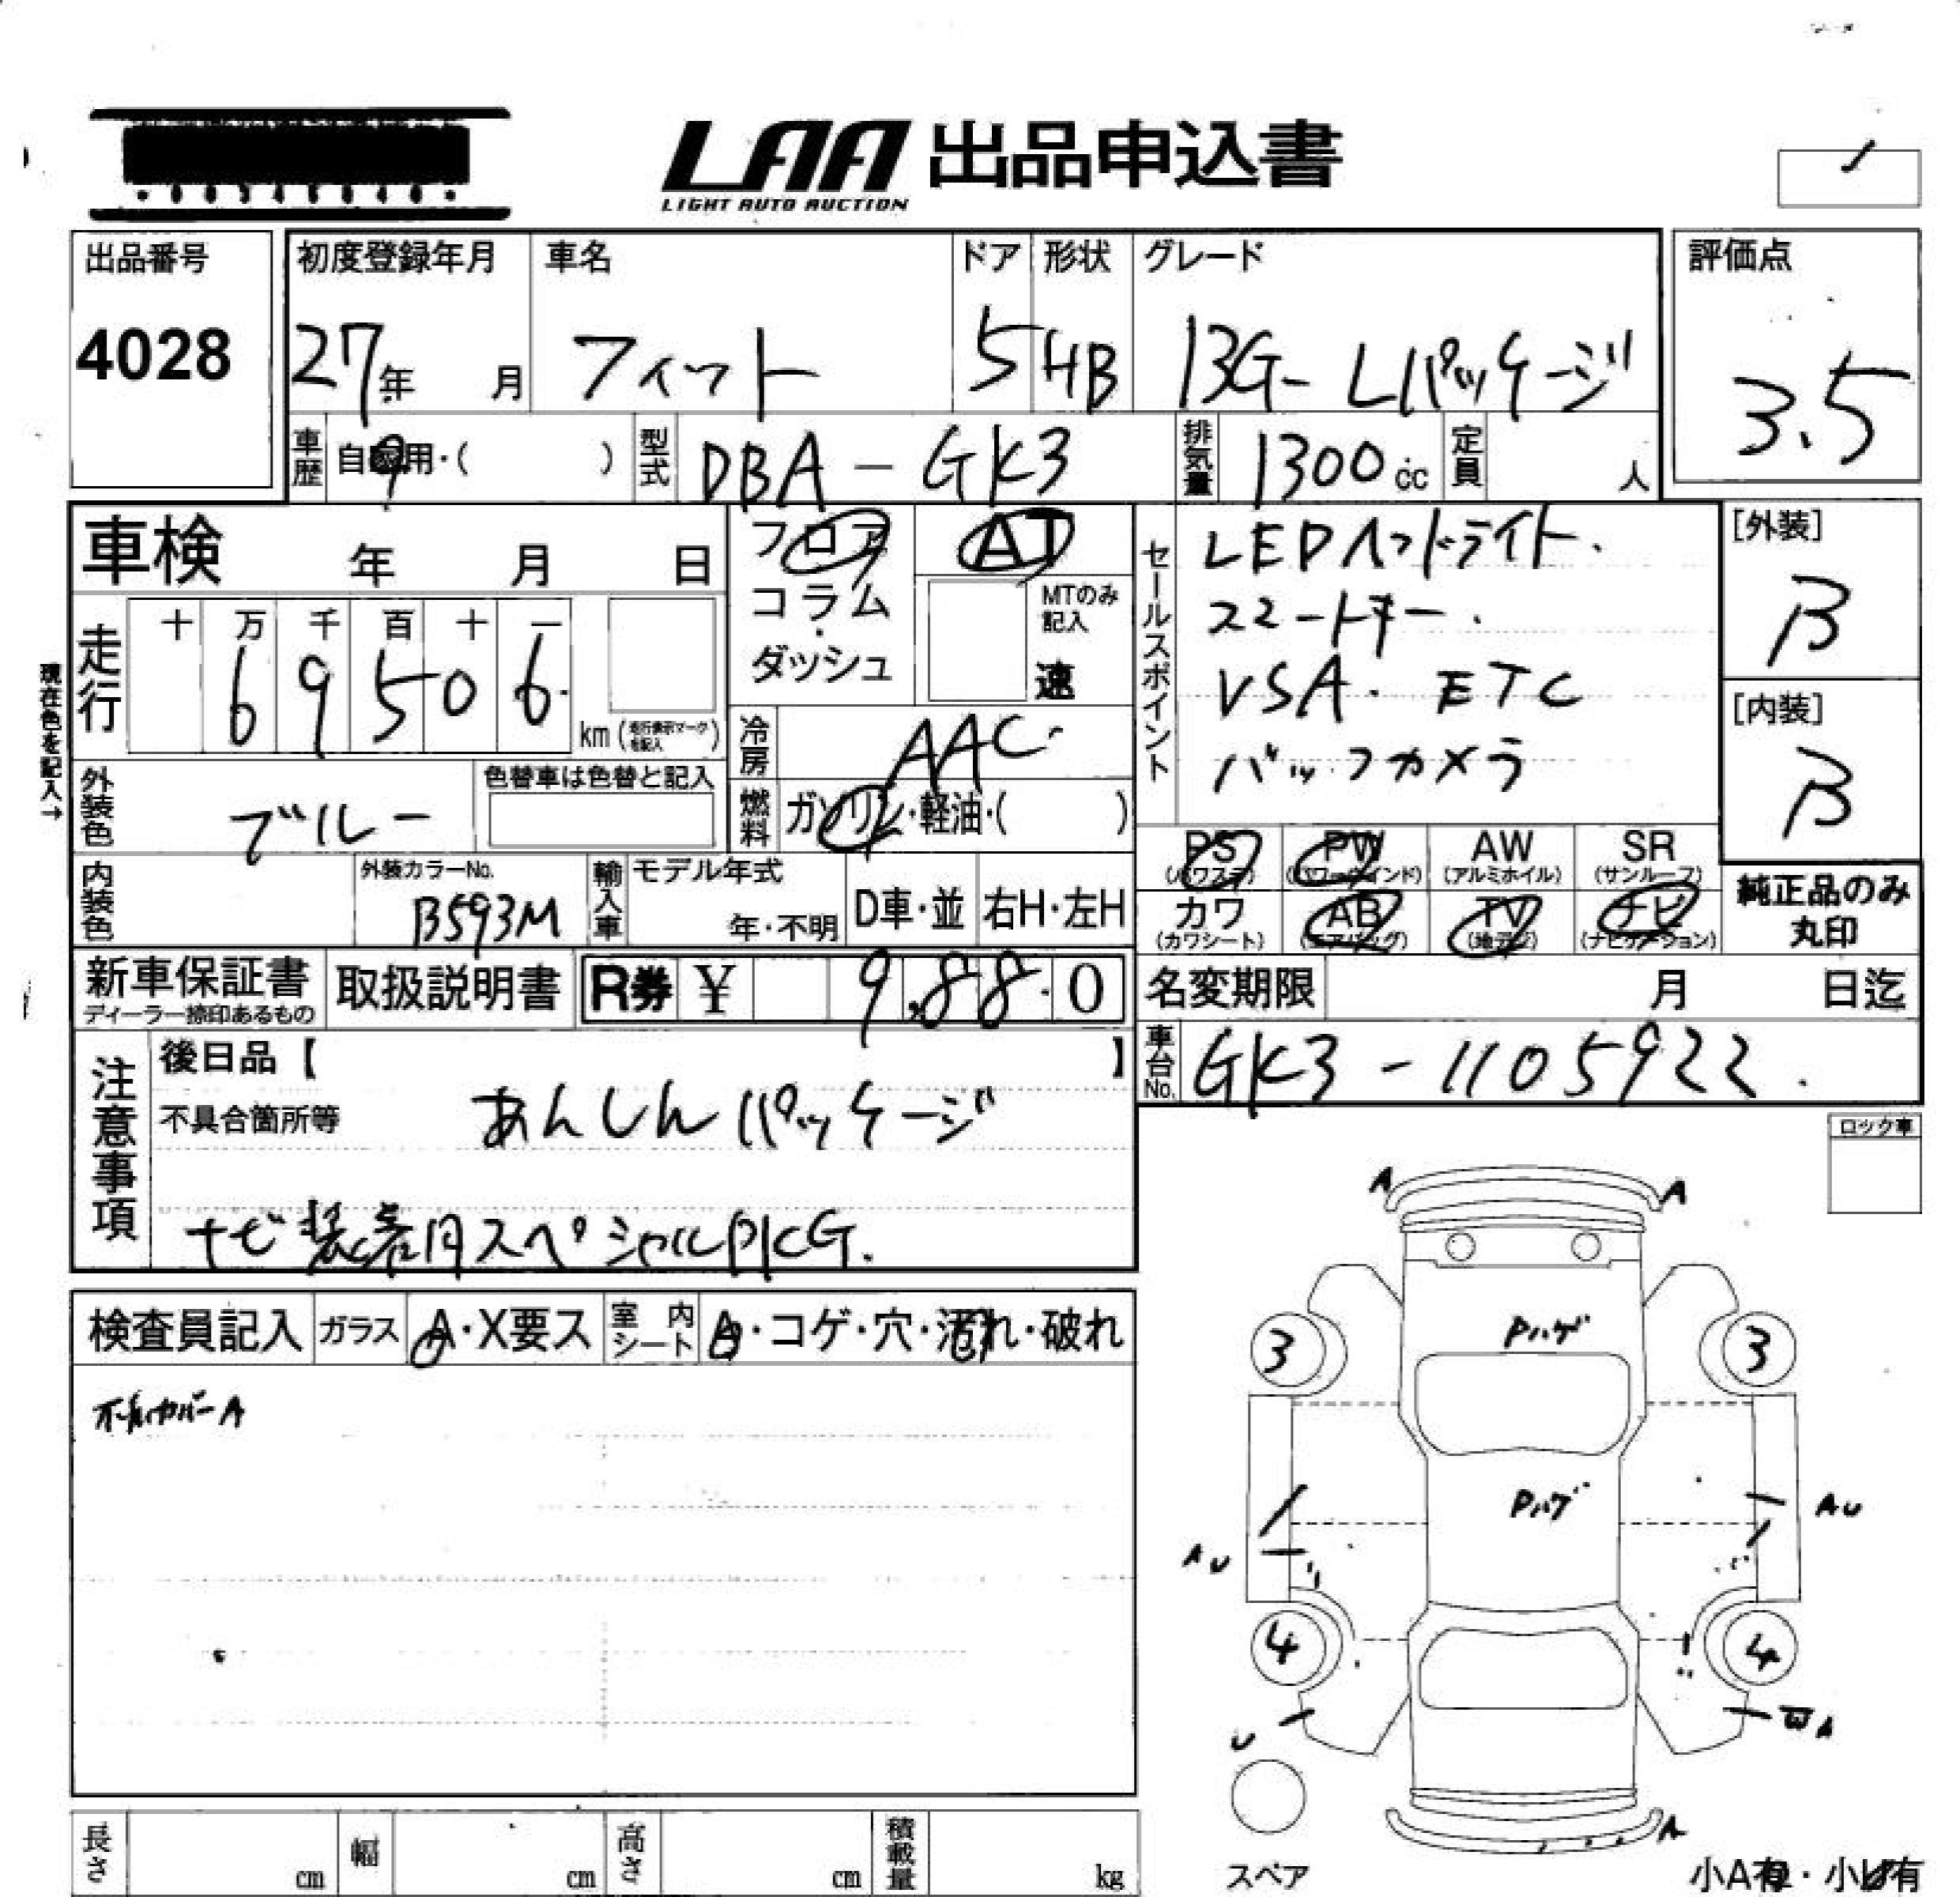 LAA 出品申込書
LIGHT AUTO AUCTION
出品番号 4028
初度登録年月 27年 月
車名 フィット
ドア 5
形状 HB
グレード 13G-Lパッケージ
評価点 3.5
車歴 自 用・( )
型式 DBA-GK3
排気量 1300cc
定員 人
車検 年 月 日
フロア
コラム
ダッシュ
AT
MTのみ記入
速
セールスポイント
LEDヘッドライト.
スマートキー.
VSA. ETC
バックカメラ
[外装] B
[内装] B
現在色を記入→
走行 十 万 千 百 十 一
6 9 5 0 6.
km (走行表示マークを記入)
冷房 AAC.
燃料 ガソリン・軽油・( )
外装色 ブルー
色替車は色替と記入
内装色
外装カラーNo. B593M
輸入車
モデル年式 年・不明
D車・並
右H・左H
PS (パワステ)
PW (パワーウインド)
AW (アルミホイル)
SR (サンルーフ)
カワ (カワシート)
AB (エアバッグ)
TV (地デジ)
ナビ (ナビゲーション)
純正品のみ
丸印
新車保証書
ディーラー捺印あるもの
取扱説明書
R券 ¥ 9.88.0
名変期限 月 日迄
車台No. GK3-1105922.
注意事項
後日品【 】
不具合箇所等 あんしんパッケージ
ナビ装着用スペシャルPKG.
ロック車
検査員記入
ガラス A・X要ス
室内シート A・コゲ・穴・汚れ・破れ
カバーA
A A
Pハゲ
3 3
Pハゲ
AU
AU
4 4
U
WA
A
スペア
小A有・小U有
長さ cm
幅 cm
高さ cm
積載量 kg